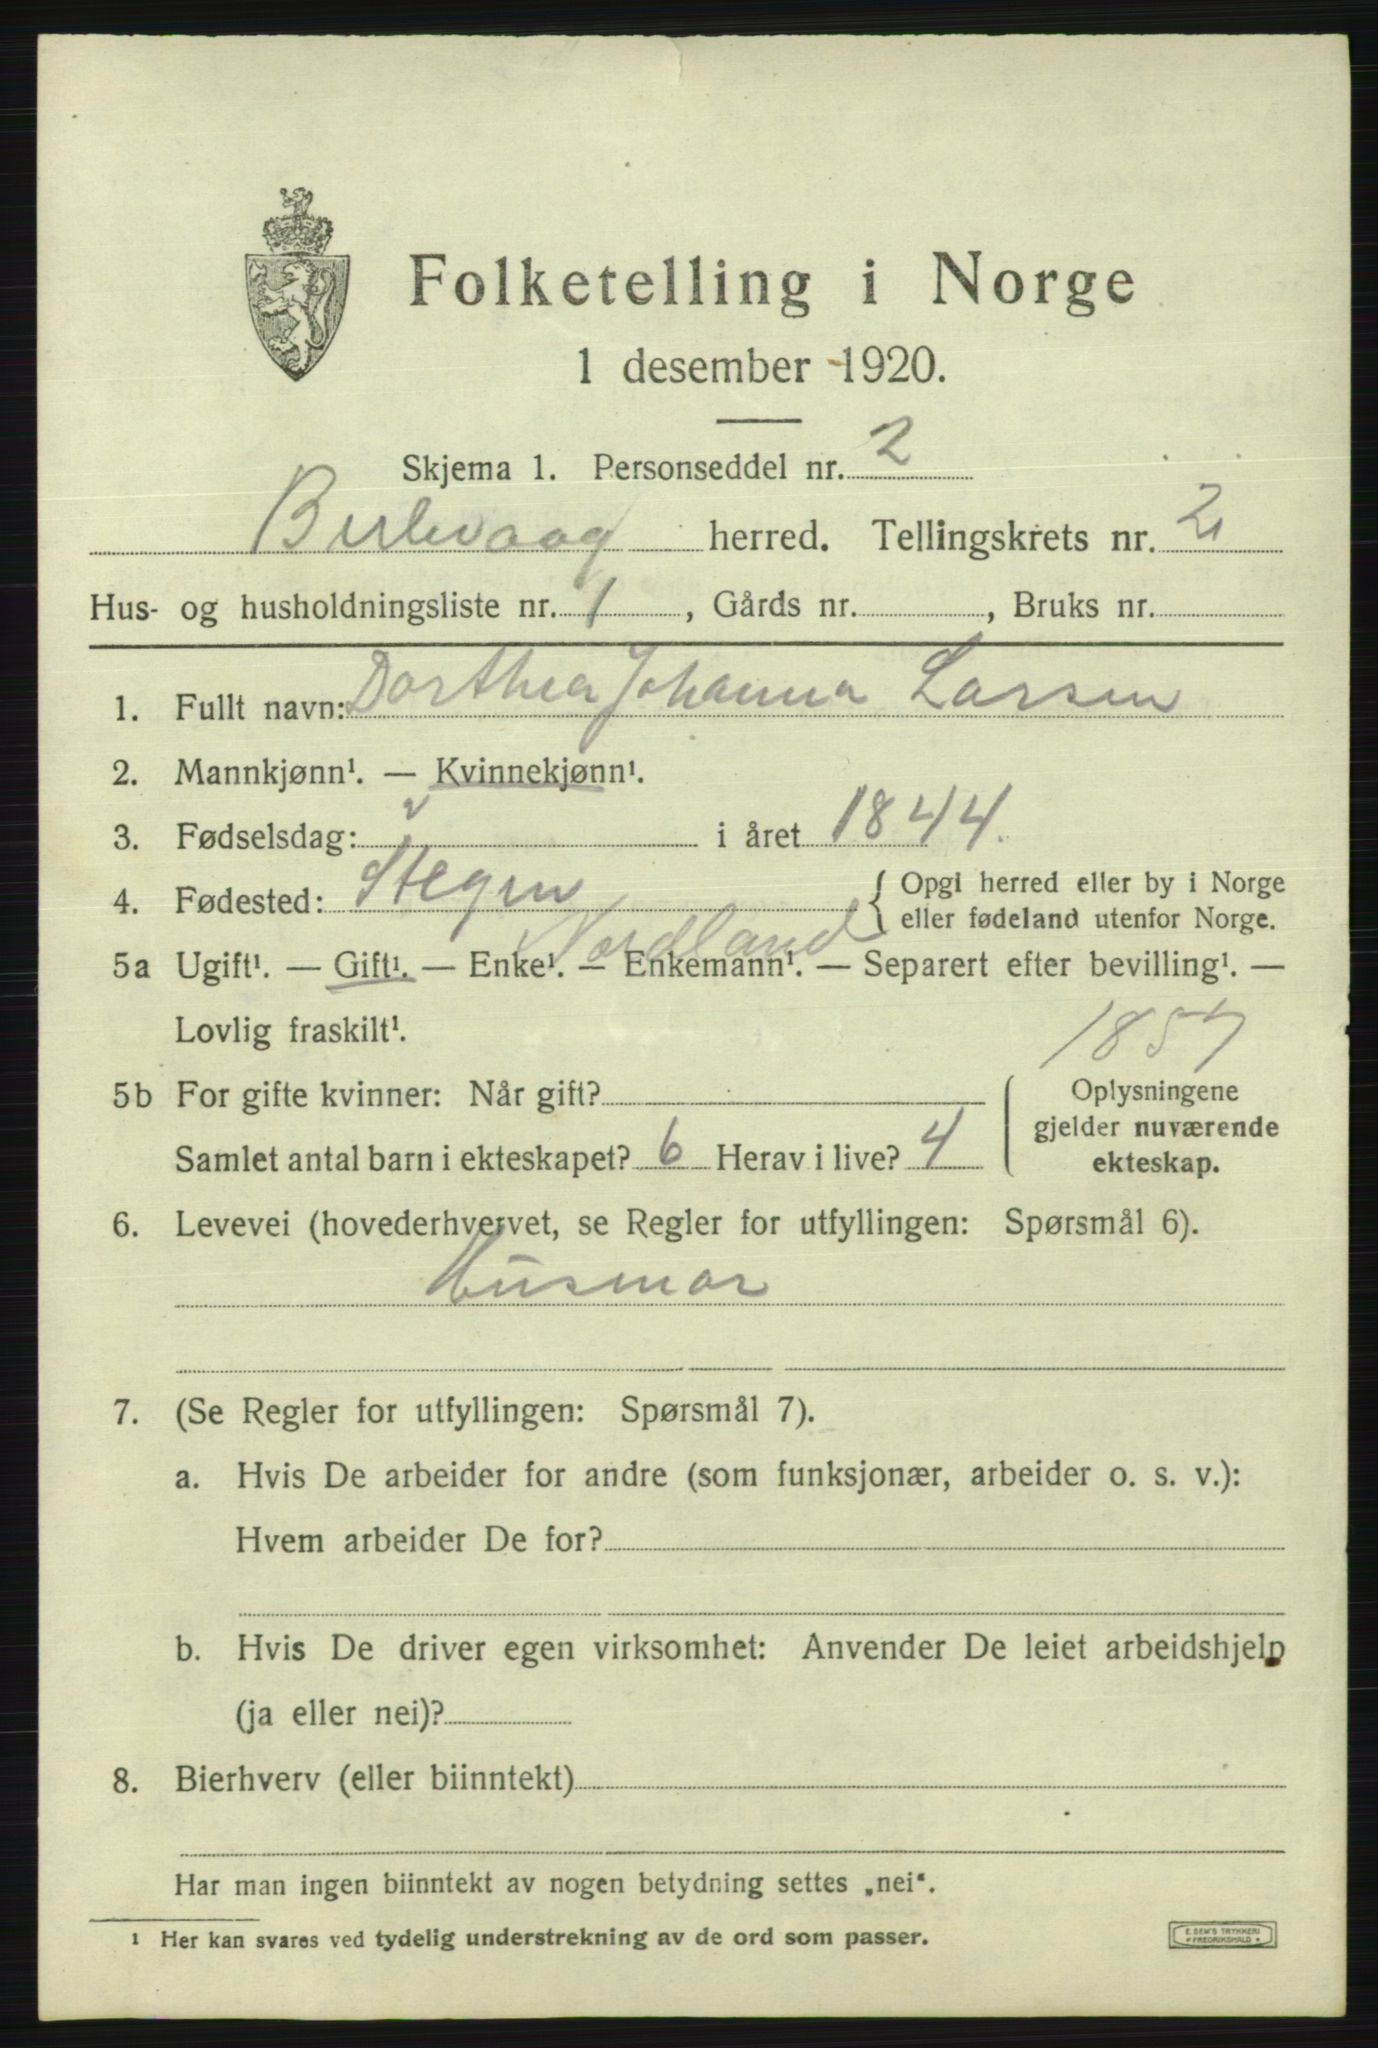 Folketelling i Norge
1 desember 1920.
Skjema 1. Personseddel nr. 2
Berlevaag herred. Tellingskrets nr. 2
Hus- og husholdningsliste nr. 1, Gårds nr. , Bruks nr.
1. Fullt navn: Dorthea Johanna Larsen
2. Mannkjønn¹. — Kvinnekjønn¹.
3. Fødselsdag: i året 1844.
4. Fødested: Stegen { Opgi herred eller by i Norge
eller fødeland utenfor Norge.
Nordland
5a Ugift¹. — Gift¹. — Enke¹. — Enkemann¹. — Separert efter bevilling¹. —
Lovlig fraskilt¹.
1857
5b For gifte kvinner: Når gift? Oplysningene
gjelder nuværende
Samlet antal barn i ekteskapet? 6 Herav i live? 4 ekteskap.
6. Levevei (hovederhvervet, se Regler for utfyllingen: Spørsmål 6).
Husmor
7. (Se Regler for utfyllingen: Spørsmål 7).
a. Hvis De arbeider for andre (som funksjonær, arbeider o. s. v.):
Hvem arbeider De for?
b. Hvis De driver egen virksomhet: Anvender De leiet arbeidshjelp
(ja eller nei)?
8. Bierhverv (eller biinntekt)
Har man ingen biinntekt av nogen betydning settes „nei“.
¹ Her kan svares ved tydelig understrekning av de ord som passer.
E. SEM'S TRYKKERI
FREDRIKSHALD